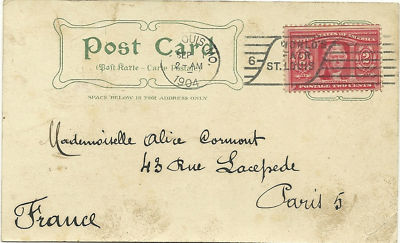 Post Card
(Post Karte — Carte Postale)
SPACE BELOW IS FOR ADDRESS ONLY
LOUIS, MO.
SEP
2 - AM
1904
6
WORLD'S
FAIR
ST. LOUIS
UNITED STATES OF AMERICA
2 2
POSTAGE TWO CENTS
Mademoiselle Alice Cormont
43 Rue Lacepede
Paris 5
France